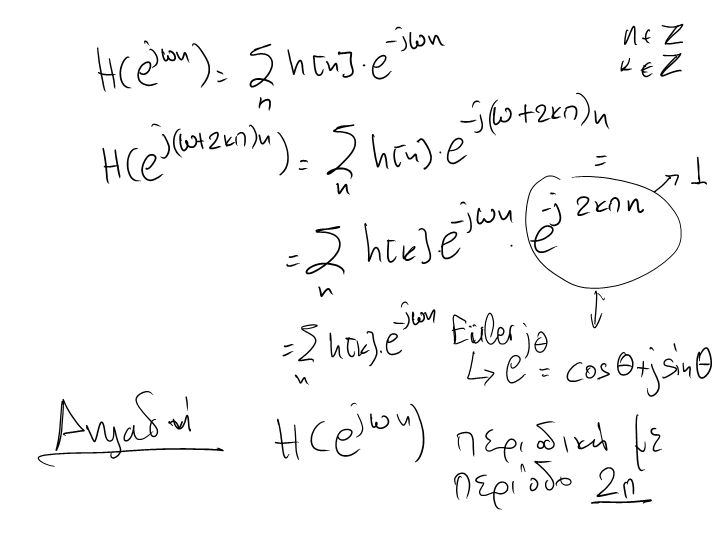 H(e^{jωn}) = Σ_n h[n]·e^{-jωn}
n ∈ Z
κ ∈ Z
H(e^{j(ω+2κπ)n}) = Σ_n h[n]·e^{-j(ω+2κπ)n} =
= Σ_n h[κ] e^{-jωn} · e^{-j2κπn} → 1
= Σ_n h[κ]·e^{-jωn} Euler
↳ e^{jθ} = cosθ+jsinθ
Δηλαδή H(e^{jωn}) περιοδική με
περίοδο 2π